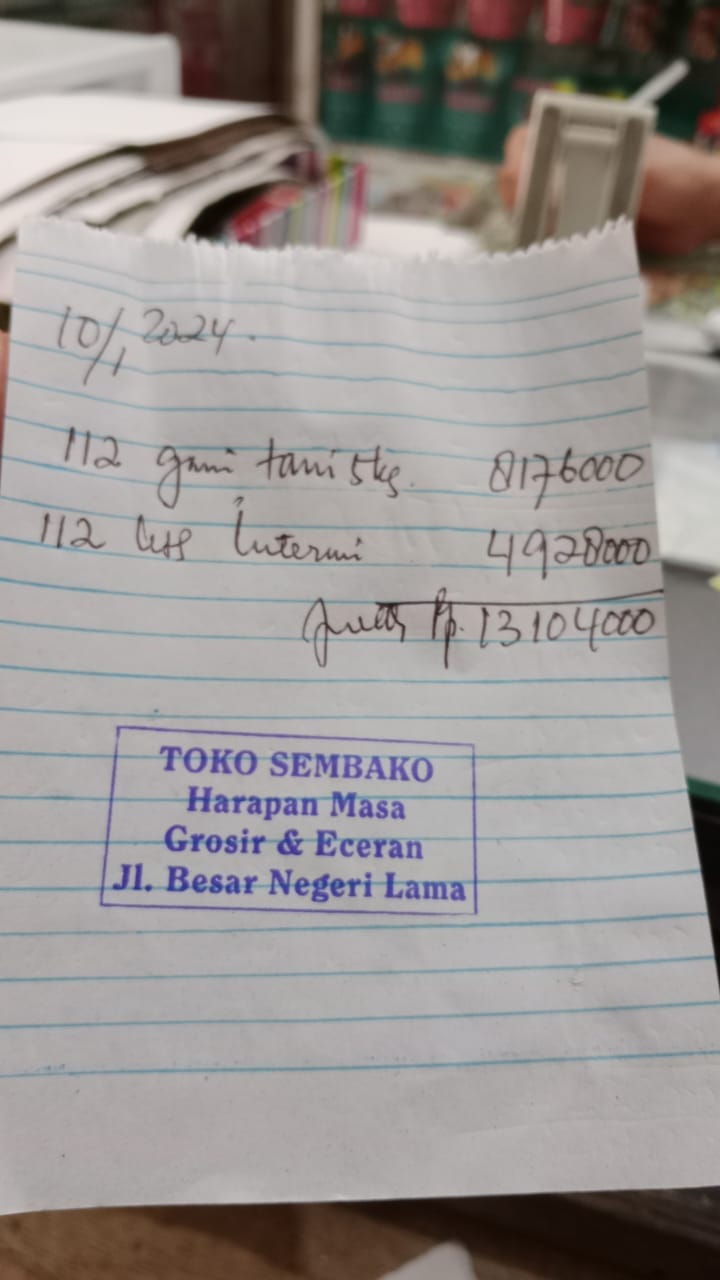 10/1 2024.
112 gni tani 5kg. 8176000
112 Intermi 4928000
Rp. 13104000
TOKO SEMBAKO
Harapan Masa
Grosir & Eceran
Jl. Besar Negeri Lama